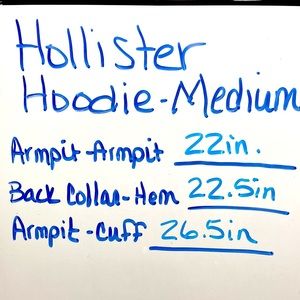 Hollister
Hoodie-Medium
Armpit-Armpit 22in.
Back Collar-Hem 22.5in
Armpit-Cuff 26.5in